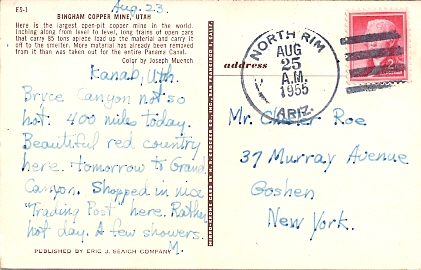 Aug. 23.
ES-1
BINGHAM COPPER MINE, UTAH
Here is the largest open-pit copper mine in the world.
Inching along from level to level, long trains of open cars
that carry 85 tons apiece load up the material and carry it
off to the smelter. More material has already been removed
from it than was taken out for the entire Panama Canal.
Color by Joseph Muench
Kanab, Uth.
Bryce Canyon not so
hot. 400 miles today.
Beautiful red country
here. tomorrow to Grand
Canyon. Shopped in nice
"Trading Post" here. Rather
hot day. A few showers.
M.
PUBLISHED BY ERIC J. SEAICH COMPANY
address
NORTH RIM
AUG
25
A.M.
1955
ARIZ.
Mr. Roe
37 Murray Avenue
Goshen
New York.